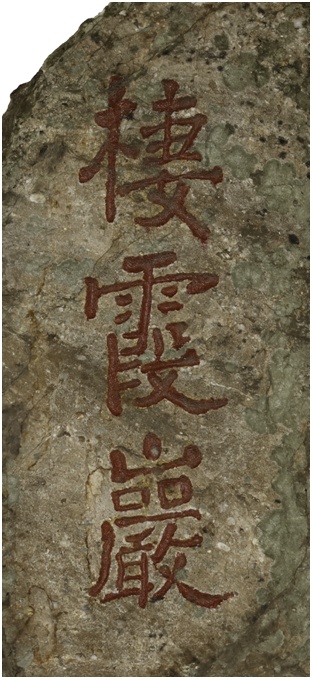 棲霞巖